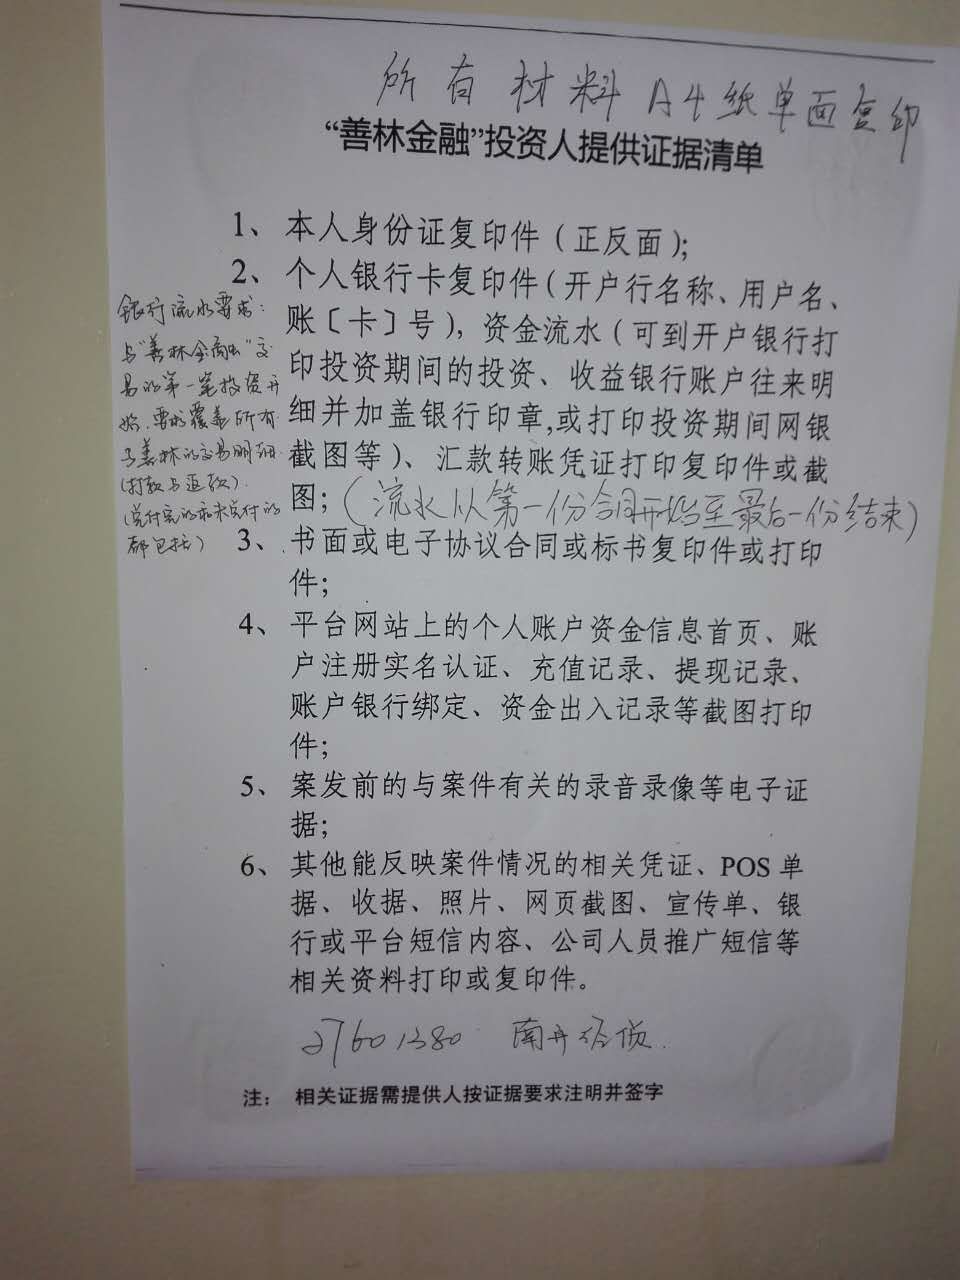 所有材料A4纸单面复印
“善林金融”投资人提供证据清单
1、本人身份证复印件（正反面）;
2、个人银行卡复印件（开户行名称、用户名、
账〔卡〕号），资金流水（可到开户银行打
印投资期间的投资、收益银行账户往来明
细并加盖银行印章,或打印投资期间网银
截图等）、汇款转账凭证打印复印件或截
图;（流水从第一份合同开始至最后一份结束）
银行流水要求：
与“善林金融”交
易的第一笔投资开
始，要求覆盖所有
与善林的交易明细.
(打款与返款).
(兑付完的和未兑付的
都包括)
3、书面或电子协议合同或标书复印件或打印
件;
4、平台网站上的个人账户资金信息首页、账
户注册实名认证、充值记录、提现记录、
账户银行绑定、资金出入记录等截图打印
件;
5、案发前的与案件有关的录音录像等电子证
据;
6、其他能反映案件情况的相关凭证、POS单
据、收据、照片、网页截图、宣传单、银
行或平台短信内容、公司人员推广短信等
相关资料打印或复印件。
27601380 南开经侦.
注： 相关证据需提供人按证据要求注明并签字